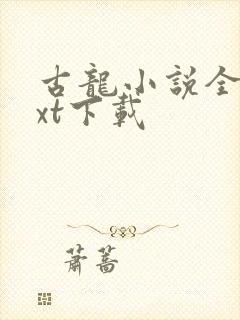 古龍小説全
xt下載
蕭蒿